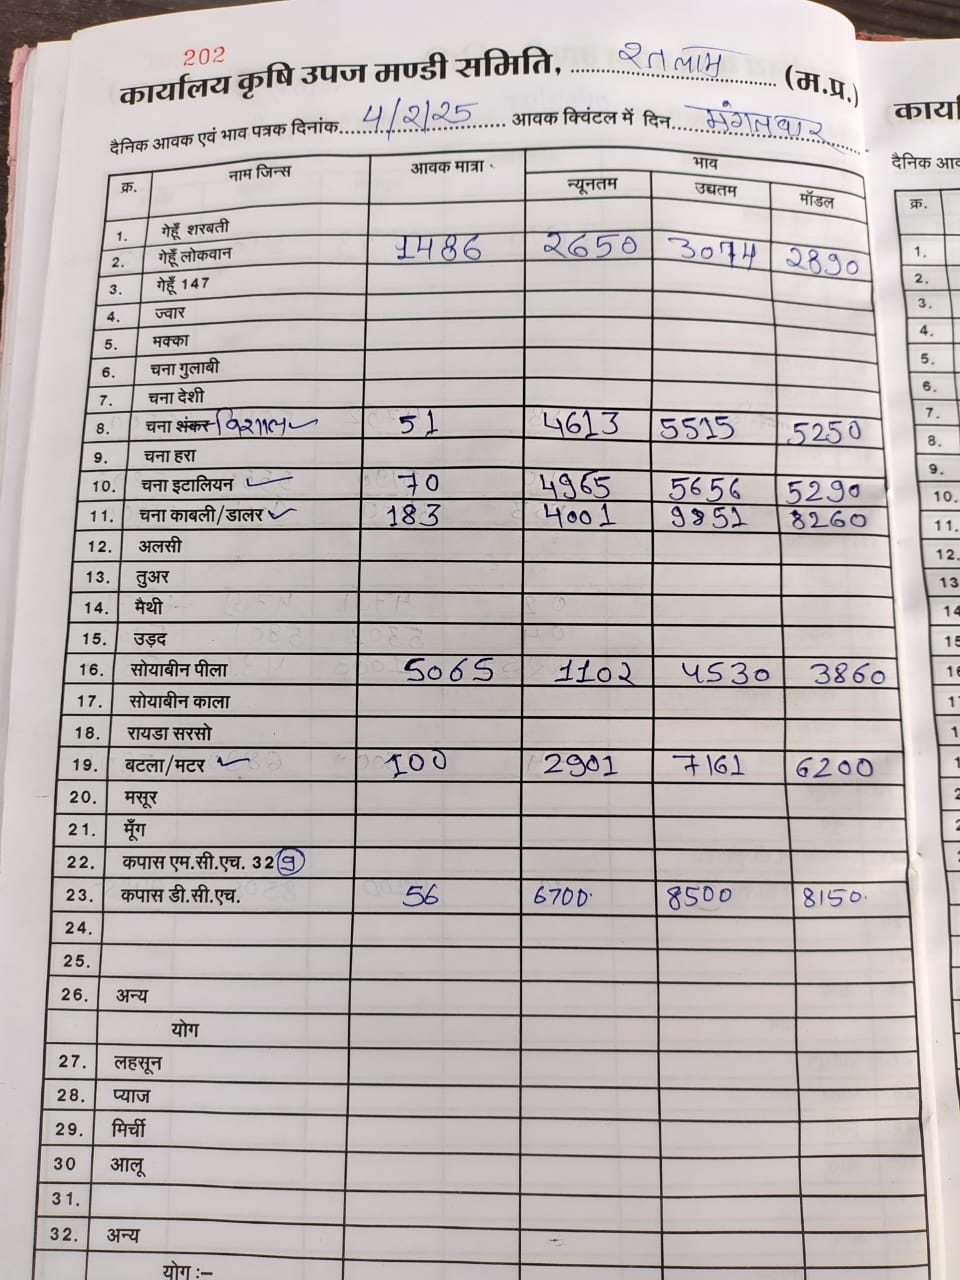 202
कार्यालय कृषि उपज मण्डी समिति, रतलाम (म.प्र.)
दैनिक आवक एवं भाव पत्रक दिनांक 4/2/25 आवक क्विंटल में दिन मंगलवार
क्र. नाम जिन्स आवक मात्रा भाव
न्यूनतम उच्चतम मॉडल
1. गेहूँ शरबती
2. गेहूँ लोकवान 1486 2650 3074 2890
3. गेहूँ 147
4. ज्वार
5. मक्का
6. चना गुलाबी
7. चना देशी
8. चना शंकर विशाल 51 4613 5515 5250
9. चना हरा
10. चना इटालियन 70 4965 5656 5290
11. चना काबली/डालर 183 4001 9851 8260
12. अलसी
13. तुअर
14. मैथी
15. उड़द
16. सोयाबीन पीला 5065 1102 4530 3860
17. सोयाबीन काला
18. रायडा सरसो
19. बटला/मटर 100 2901 7161 6200
20. मसूर
21. मूँग
22. कपास एम.सी.एच. 32
23. कपास डी.सी.एच. 56 6700 8500 8150
24.
25.
26. अन्य
योग
27. लहसून
28. प्याज
29. मिर्ची
30 आलू
31.
32. अन्य
योग :–
कार्या
दैनिक आव
क्र.
1.
2.
3.
4.
5.
6.
7.
8.
9.
10.
11.
12.
13
14
15
16